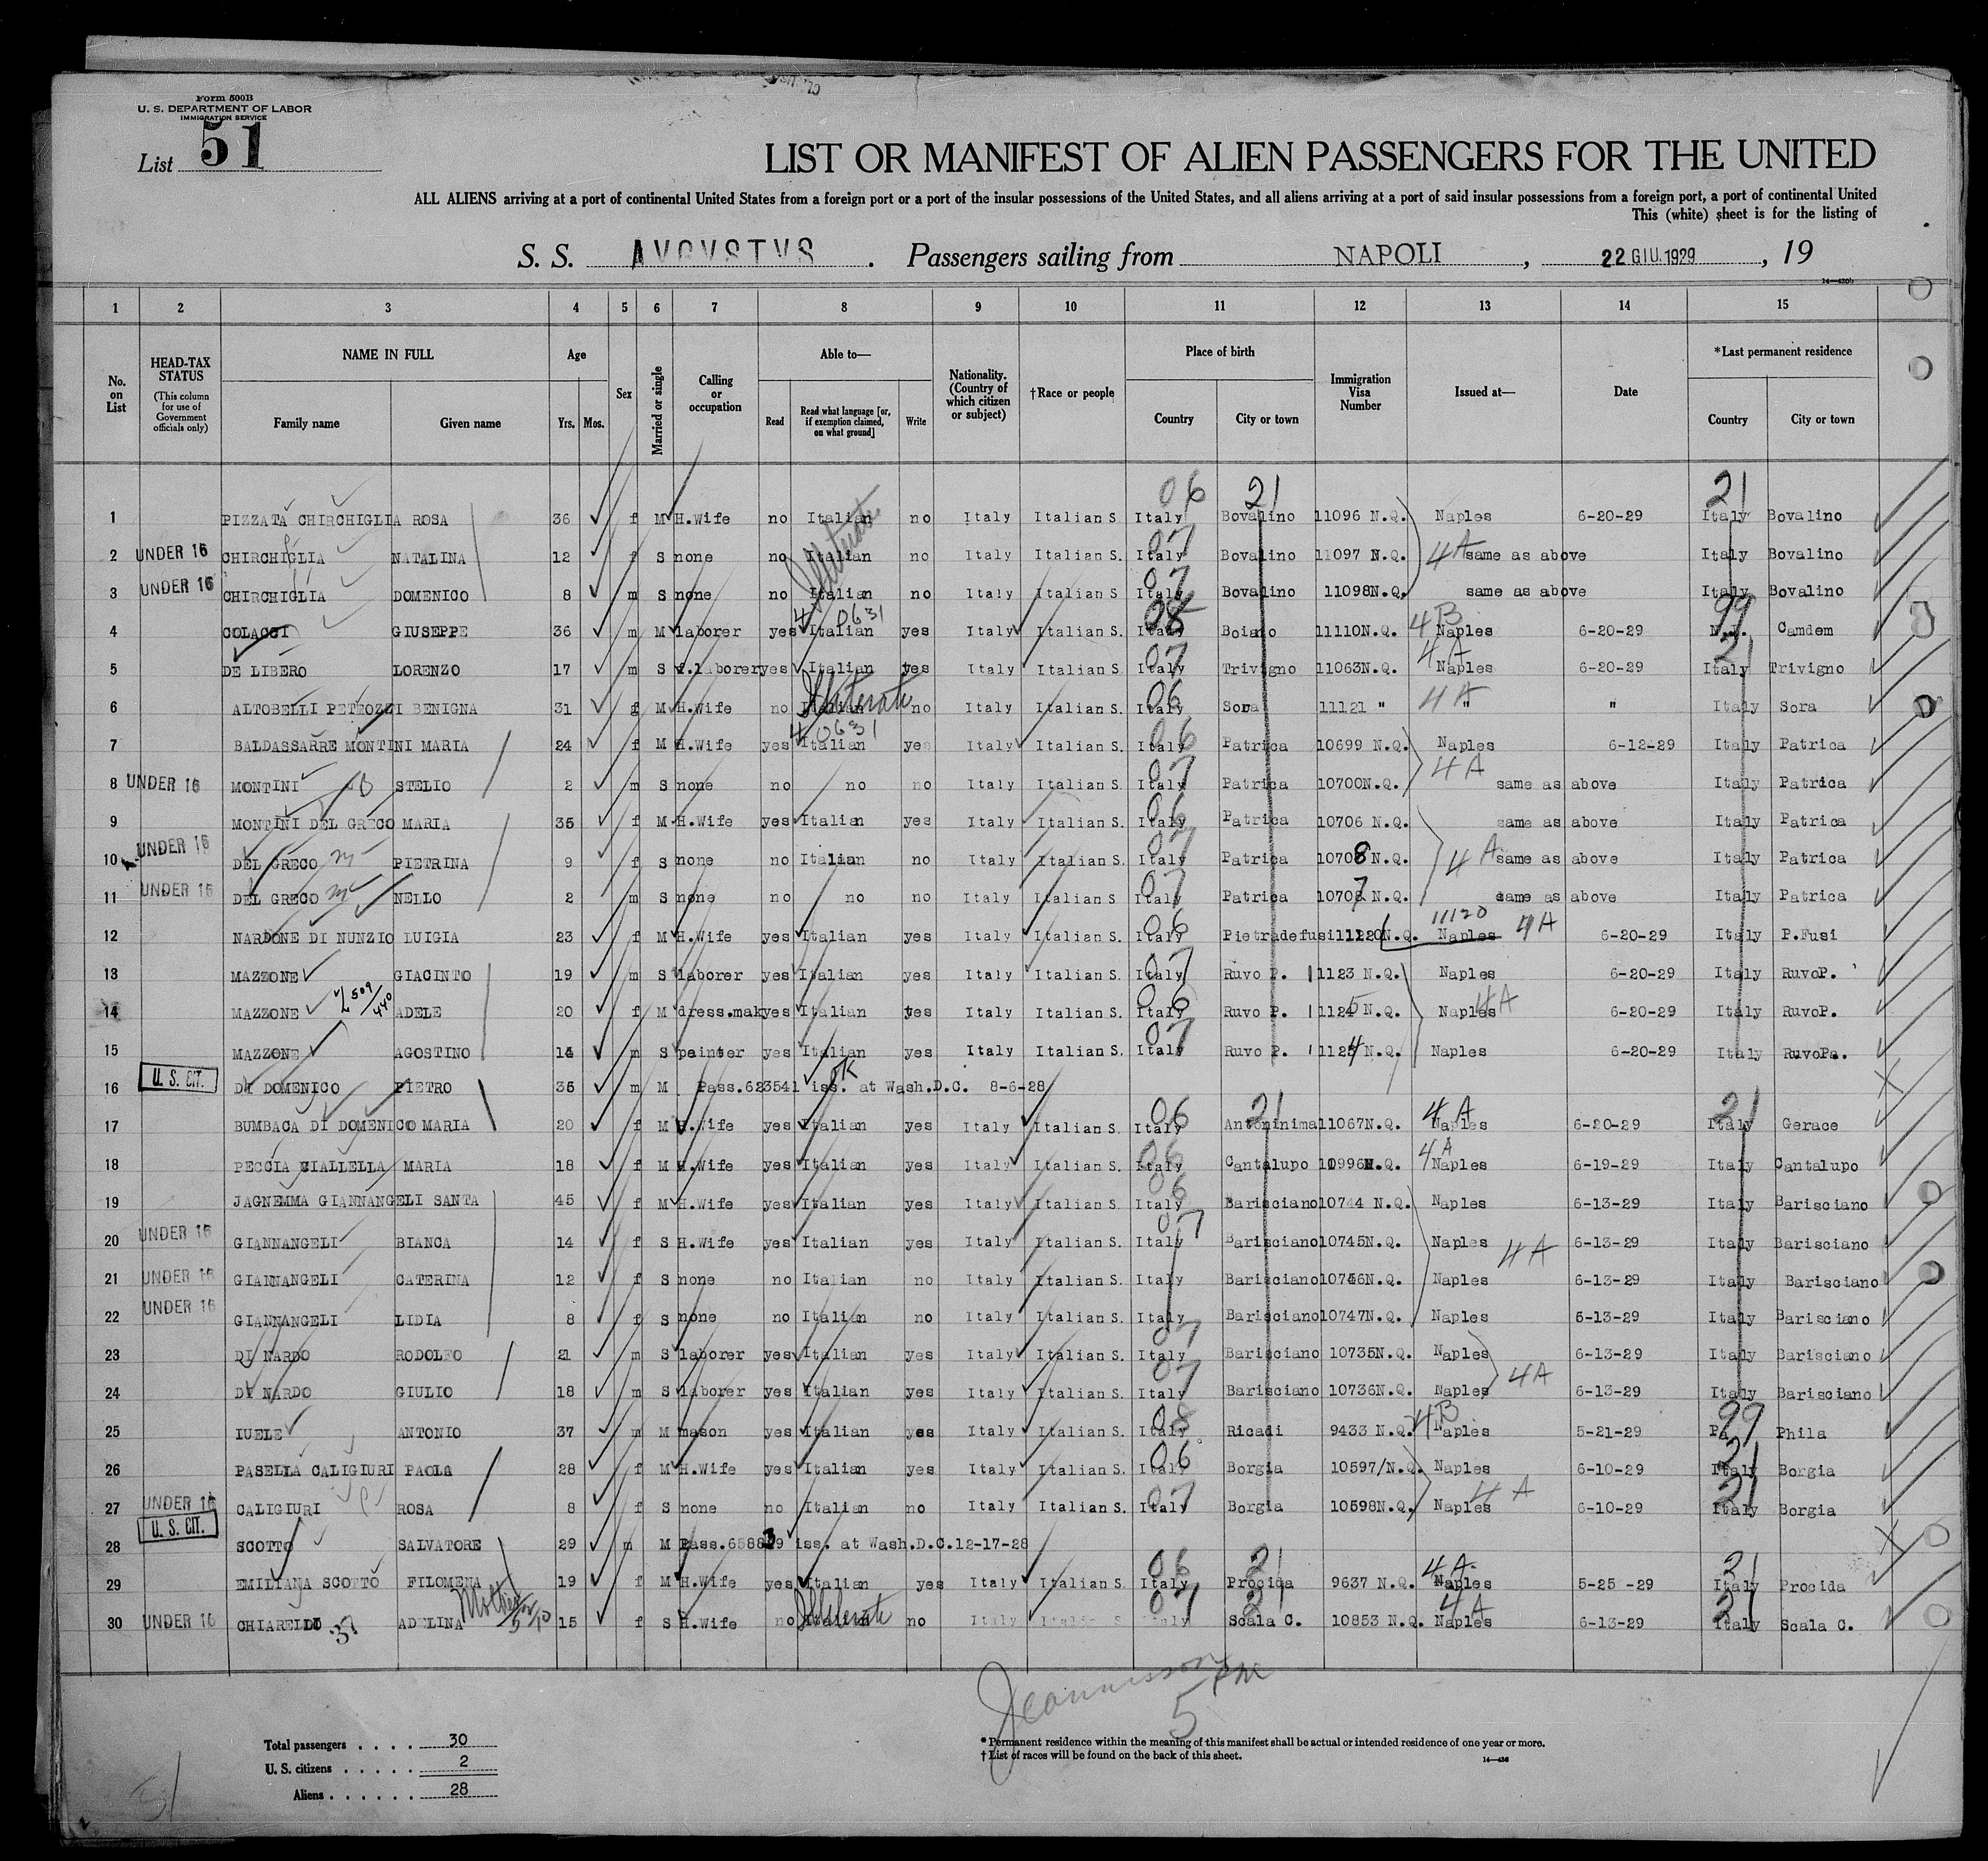 Form 500B
U. S. DEPARTMENT OF LABOR
IMMIGRATION SERVICE
List 51
LIST OR MANIFEST OF ALIEN PASSENGERS FOR THE UNITED
ALL ALIENS arriving at a port of continental United States from a foreign port or a port of the insular possessions of the United States, and all aliens arriving at a port of said insular possessions from a foreign port, a port of continental United
This (white) sheet is for the listing of
S. S. AVGVSTVS . Passengers sailing from NAPOLI , 22 GIU.1929 , 19
14—430b
1 2 3 4 5 6 7 8 9 10 11 12 13 14 15
No. on List HEAD-TAX STATUS (This column for use of Government officials only) NAME IN FULL Family name Given name Age Yrs. Mos. Sex Married or single Calling or occupation Able to— Read Read what language [or, if exemption claimed, on what ground] Write Nationality. (Country of which citizen or subject) †Race or people Place of birth Country City or town Immigration Visa Number Issued at— Date *Last permanent residence Country City or town
06 21 21
1 PIZZATA CHIRCHIGLIA ROSA 36 f M H.Wife no Italian no Italy Italian S. Italy Bovalino 11096 N.Q. Naples 6-20-29 Italy Bovalino
2 UNDER 16 CHIRCHIGLIA NATALINA 12 f S none no Italian Illiterate no Italy Italian S. Italy 07 Bovalino 11097 N.Q. 4A same as above Italy Bovalino
3 UNDER 16 CHIRCHIGLIA DOMENICO 8 m S none no Italian no Italy Italian S Italy 07 Bovalino 11098N.Q. same as above Italy Bovalino
4 COLACCI GIUSEPPE 36 m M laborer yes Italian 4 0631 yes Italy Italian S. Italy 08 Boiano 11110N.Q. 4B Naples 6-20-29 99 Camdem
5 DE LIBERO LORENZO 17 m S f.laborer yes Italian yes Italy Italian S. Italy 07 Trivigno 11063N.Q. 4A Naples 6-20-29 Italy 21 Trivigno
6 ALTOBELLI PETROZZI BENIGNA 31 f M H.Wife no Italian Illiterate no Italy Italian S. Italy 06 Sora 11121 " 4A " " Italy Sora
7 BALDASSARRE MONTINI MARIA 24 f M H.Wife yes Italian 4 0631 yes Italy Italian S. Italy 06 Patrica 10699 N.Q. Naples 6-12-29 Italy Patrica
8 UNDER 16 MONTINI B STELIO 2 m S none no no no Italy Italian S. Italy 07 Patrica 10700N.Q. 4A same as above Italy Patrica
9 MONTINI DEL GRECO MARIA 35 f M H.Wife yes Italian yes Italy Italian S. Italy 06 Patrica 10706 N.Q. same as above Italy Patrica
10 UNDER 16 DEL GRECO m PIETRINA 9 f S none no Italian no Italy Italian S. Italy 07 Patrica 10708 N.Q. 4A same as above Italy Patrica
11 UNDER 16 DEL GRECO m NELLO 2 m S none no no no Italy Italian S Italy 07 Patrica 10707 N.Q. same as above Italy Patrica
12 NARDONE DI NUNZIO LUIGIA 23 f M H.Wife yes Italian yes Italy Italian S. Italy 06 Pietradefusi 11120 N.Q. 11120 Naples 4A 6-20-29 Italy P.Fusi
13 MAZZONE GIACINTO 19 m S laborer yes Italian yes Italy Italian S. Italy 07 Ruvo P. 11123 N.Q. Naples 6-20-29 Italy RuvoP.
14 MAZZONE 509/440 ADELE 20 f M dress.mak yes Italian yes Italy Italian S. Italy 06 Ruvo P. 11125 N.Q. Naples 4A 6-20-29 Italy RuvoP.
15 MAZZONE AGOSTINO 14 m S painter yes Italian yes Italy Italian S. Italy 07 Ruvo P. 11124 N.Q. Naples 6-20-29 Italy RuvoPa.
16 U. S. CIT. DI DOMENICO PIETRO 35 m M Pass.623541 iss. at Wash.D.C. 8-6-28 OK X
17 BUMBACA DI DOMENICO MARIA 20 f M H.Wife yes Italian yes Italy Italian S. Italy 06 21 Antoninima 11067N.Q. 4A Naples 6-20-29 Italy 21 Gerace
18 PECCIA CIALLELLA MARIA 18 f M H.Wife yes Italian yes Italy Italian S. Italy 06 Cantalupo 10996N.Q. 4A Naples 6-19-29 Italy Cantalupo
19 JAGNEMMA GIANNANGELI SANTA 45 f M H.Wife yes Italian yes Italy Italian S. Italy 06 Barisciano 10744 N.Q. Naples 6-13-29 Italy Barisciano
20 UNDER 16 GIANNANGELI BIANCA 14 f S H.Wife yes Italian yes Italy Italian S. Italy 07 Barisciano 10745N.Q. Naples 4A 6-13-29 Italy Barisciano
21 UNDER 16 GIANNANGELI CATERINA 12 f S none no Italian no Italy Italian S. Italy Barisciano 10746N.Q. Naples 6-13-29 Italy Barisciano
22 UNDER 16 GIANNANGELI LIDIA 8 f S none no Italian no Italy Italian S. Italy Barisciano 10747N.Q. Naples 6-13-29 Italy Barisciano
23 DI NARDO RODOLFO 21 m S laborer yes Italian yes Italy Italian S. Italy 07 Barisciano 10735N.Q. Naples 6-13-29 Italy Barisciano
24 DI NARDO GIULIO 18 m S laborer yes Italian yes Italy Italian S. Italy 07 Barisciano 10736N.Q. Naples 4A 6-13-29 Italy Barisciano
25 IUELE ANTONIO 37 m M mason yes Italian yes Italy Italian S. Italy 08 Ricadi 9433 N.Q. 4B Naples 5-21-29 Pa 99 Phila
26 PASELLA CALIGIURI PAOLA 28 f M H.Wife yes Italian yes Italy Italian S. Italy 06 Borgia 10597/N.Q. Naples 6-10-29 Italy 21 Borgia
27 UNDER 16 CALIGIURI ROSA 8 f S none no Italian no Italy Italian S. Italy 07 Borgia 10598N.Q. Naples 4A 6-10-29 Italy 21 Borgia
28 U. S. CIT. SCOTTO SALVATORE 29 m M Pass.658839 iss. at Wash.D.C.12-17-28 X
29 EMILIANA SCOTTO FILOMENA 19 f M H.Wife yes Italian yes Italy Italian S. Italy 06 21 Procida 9637 N.Q. 4A Naples 5-25 -29 Italy 21 Procida
30 UNDER 16 CHIARELLO 37 ADELINA Mother 15 f S H.Wife no Italian Illiterate no Italy Italian S Italy 07 21 Scala C. 10853 N.Q. 4A Naples 6-13-29 Italy 21 Scala C.
5 PM
Total passengers . . . . 30
U. S. citizens . . . . . 2
Aliens . . . . . . 28
* Permanent residence within the meaning of this manifest shall be actual or intended residence of one year or more.
† List of races will be found on the back of this sheet.
14—436
51